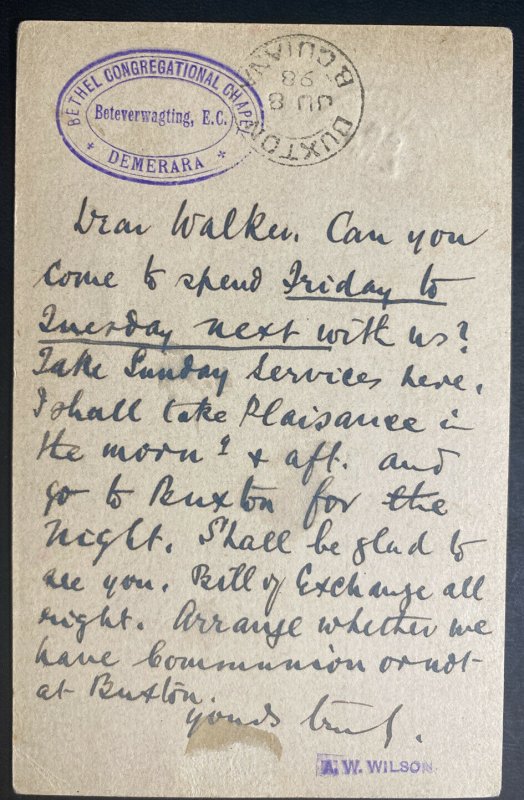 BETHEL CONGREGATIONAL CHAPEL
Beteverwagting, E.C.
* DEMERARA *
BUXTON
JU 8
98
B. GUIANA
Dear Walker. Can you
come to spend Friday to
Tuesday next with us?
Take Sunday Services here.
I shall take Plaisance in
the morng & aft. and
go to Buxton for the
night. Shall be glad to
see you. Bill of Exchange all
right. Arrange whether we
have Communion or not
at Buxton.
yours truly.
A. W. WILSON.